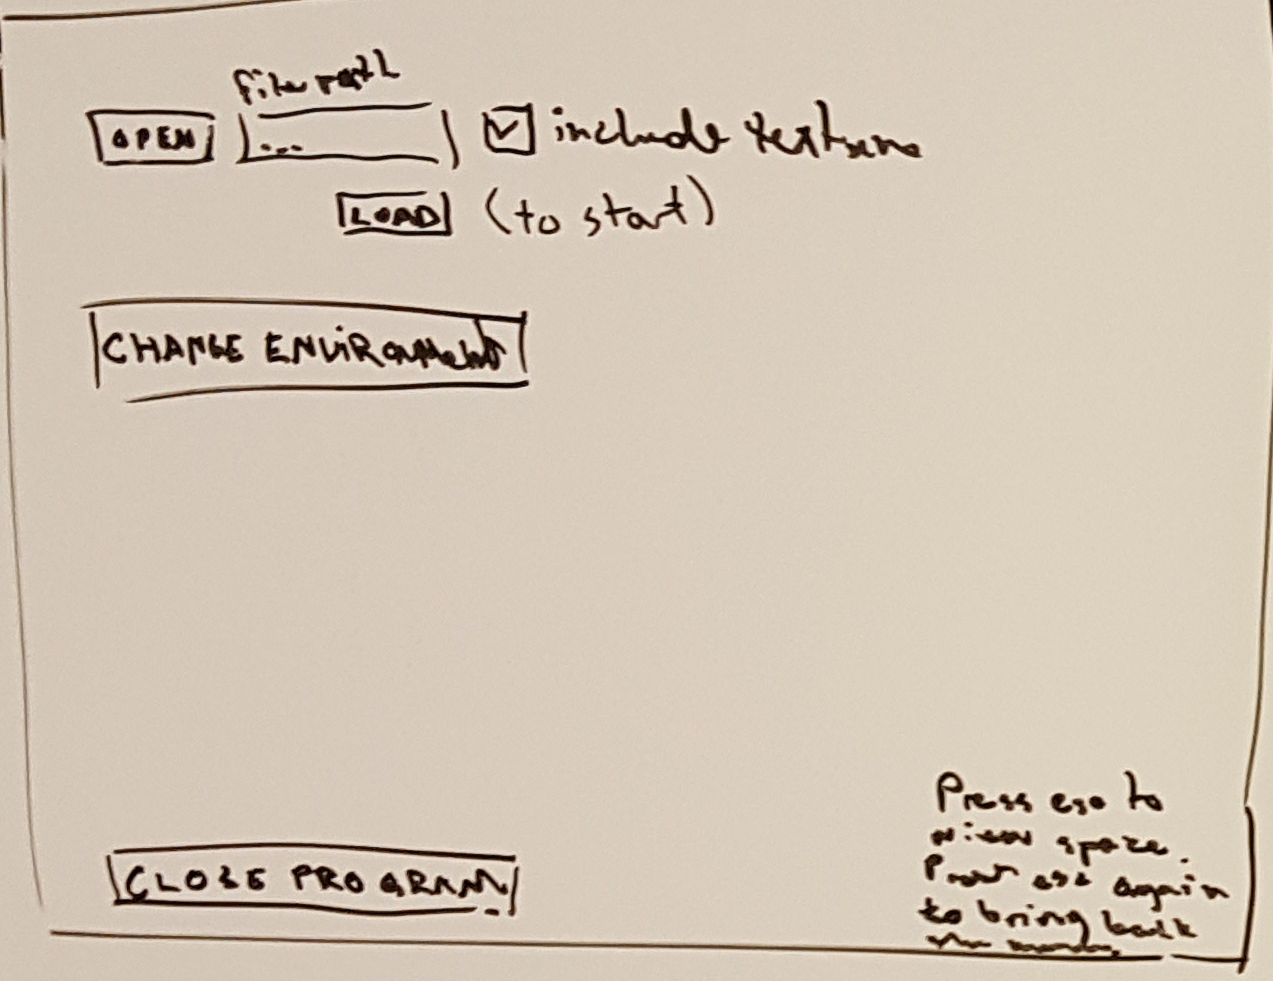 file path
OPEN ... include texture
LOAD (to start)
CHANGE ENVIRONMENT
CLOSE PROGRAM
Press esc to
view space.
Press esc again
to bring back
the